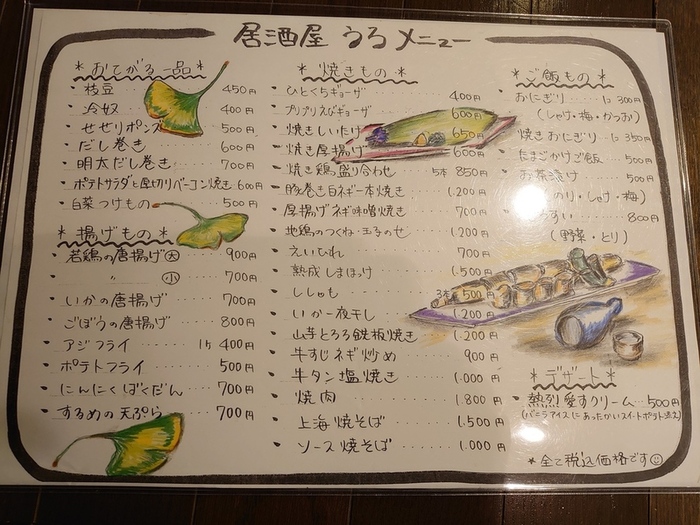 居酒屋 うろ メニュー
* おてがる一品 *
・枝豆 450円
・冷奴 400円
・せせりポンズ 500円
・だし巻き 600円
・明太だし巻き 700円
・ポテトサラダと厚切りベーコン焼き 600円
・白菜つけもの 500円
* 揚げもの *
・若鶏の唐揚げ (大) 900円
〃 (小) 700円
・いかの唐揚げ 700円
・ごぼうの唐揚げ 800円
・アジフライ 1ケ 400円
・ポテトフライ 500円
・にんにくばくだん 700円
・するめの天ぷら 700円
* 焼きもの *
・ひとくちギョーザ 400円
・プリプリえびギョーザ 600円
・焼きしいたけ 650円
・焼き厚揚げ 600円
・焼き鶏盛り合わせ 5本 850円
・豚巻き白ネギ一本焼き 1.200円
・厚揚げネギ味噌焼き 700円
・地鶏のつくね・玉子のせ 1.200円
・えいひれ 700円
・熟成しまほっけ 1.500円
・ししゃも 500円
・いか一夜干し 1.200円
・山芋とろろ鉄板焼き 1.200円
・牛すじネギ炒め 900円
・牛タン塩焼き 1.000円
・焼肉 1.800円
・上海焼そば 1.500円
・ソース焼そば 1.000円
* ご飯もの *
・おにぎり 1ケ 300円
(しゃけ・梅・かつお)
・焼きおにぎり 1ケ 350円
・たまごかけご飯 500円
・お茶漬け 500円
のり・しゃけ・梅)
すい 800円
(野菜・とり)
* デザート *
・熱烈愛すクリーム 500円
(バニラアイスにあったかいスイートポテト添え)
* 全て税込価格です☺